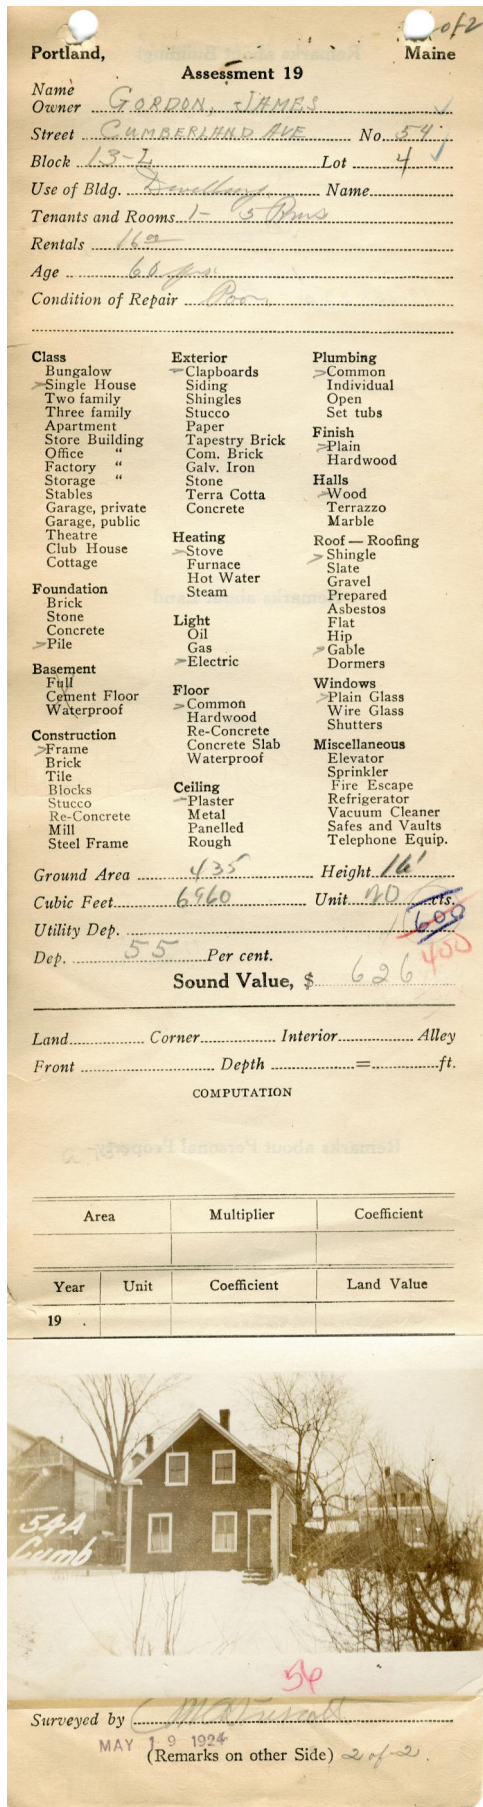 of 2
Portland, Maine
Assessment 19
Name
Owner GORDON, JAMES
Street CUMBERLAND AVE No. 54
Block 13-L Lot 4
Use of Bldg. Dwelling Name
Tenants and Rooms 1- 5 Rms
Rentals 16
Age 60 yrs
Condition of Repair Poor
Class
Bungalow
Single House
Two family
Three family
Apartment
Store Building
Office "
Factory "
Storage "
Stables
Garage, private
Garage, public
Theatre
Club House
Cottage
Foundation
Brick
Stone
Concrete
Pile
Basement
Full
Cement Floor
Waterproof
Construction
Frame
Brick
Tile
Blocks
Stucco
Re-Concrete
Mill
Steel Frame
Exterior
Clapboards
Siding
Shingles
Stucco
Paper
Tapestry Brick
Com. Brick
Galv. Iron
Stone
Terra Cotta
Concrete
Heating
Stove
Furnace
Hot Water
Steam
Light
Oil
Gas
Electric
Floor
Common
Hardwood
Re-Concrete
Concrete Slab
Waterproof
Ceiling
Plaster
Metal
Panelled
Rough
Plumbing
Common
Individual
Open
Set tubs
Finish
Plain
Hardwood
Halls
Wood
Terrazzo
Marble
Roof — Roofing
Shingle
Slate
Gravel
Prepared
Asbestos
Flat
Hip
Gable
Dormers
Windows
Plain Glass
Wire Glass
Shutters
Miscellaneous
Elevator
Sprinkler
Fire Escape
Refrigerator
Vacuum Cleaner
Safes and Vaults
Telephone Equip.
Ground Area 435 Height 16'
Cubic Feet 6960 Unit 20 cts.
600
Utility Dep.
400
Dep. 55 Per cent.
Sound Value, $ 626
Land Corner Interior Alley
Front Depth = ft.
COMPUTATION
Area Multiplier Coefficient
Year Unit Coefficient Land Value
19 .
54A
Cumb
56
Surveyed by
MAY 19 1924
(Remarks on other Side) 2 of 2.